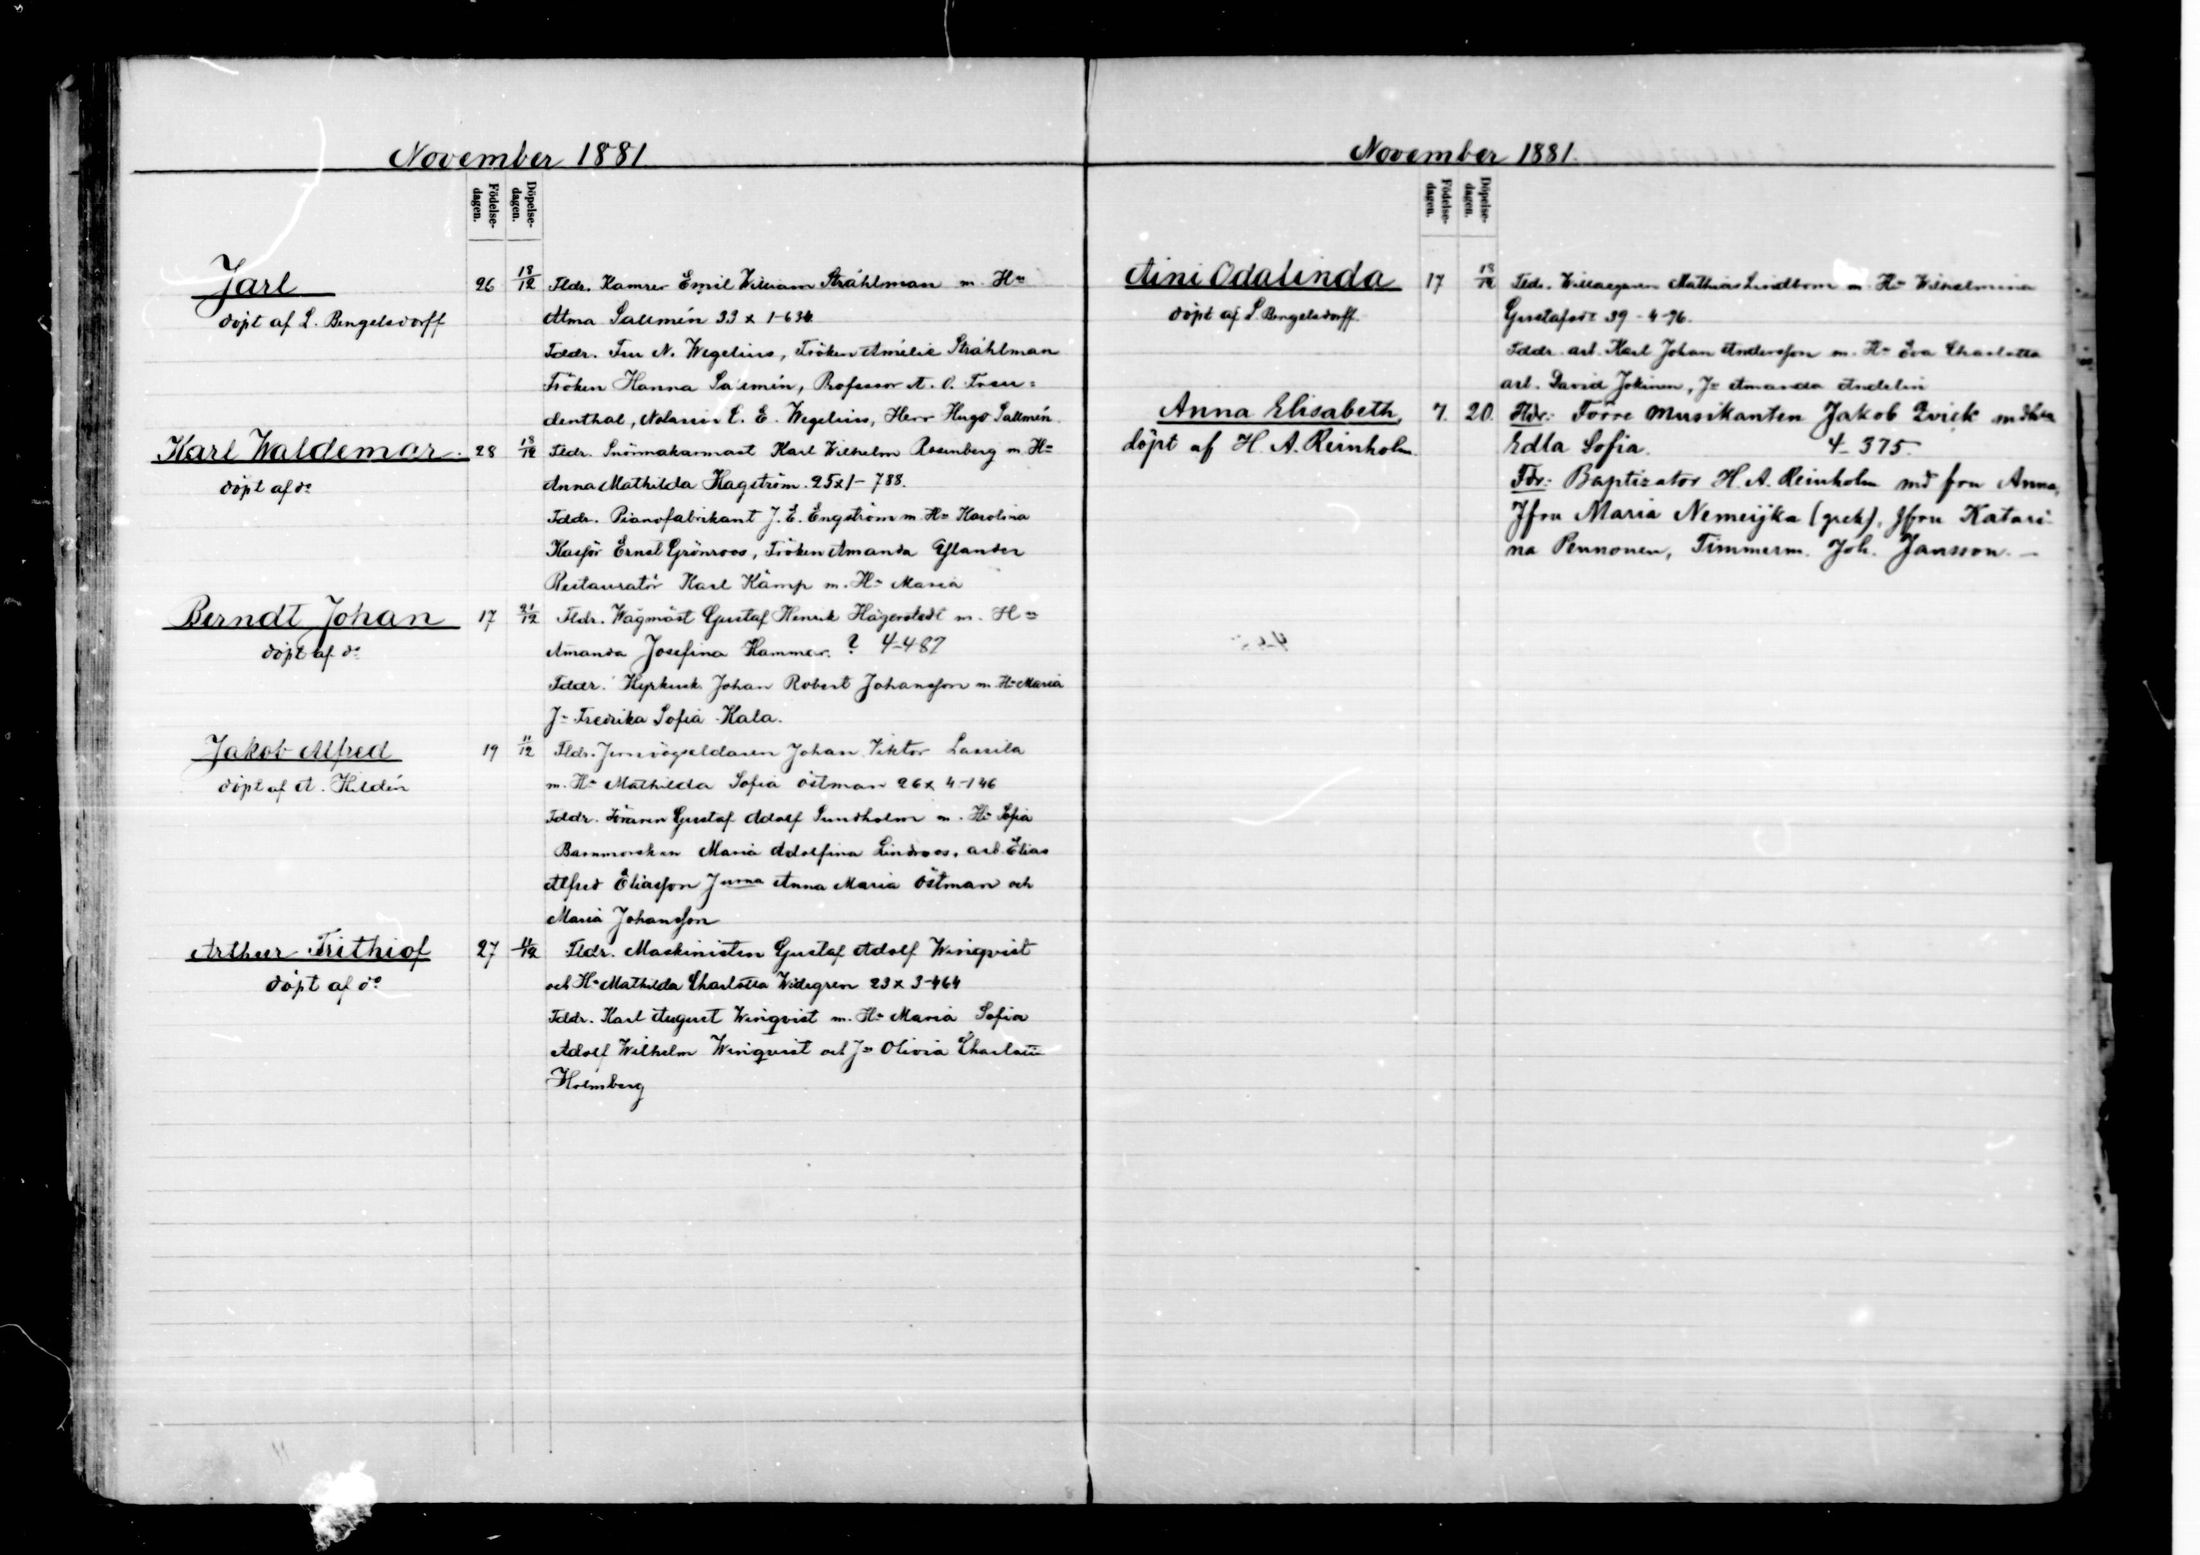 November 1881
Födelse-
dagen.
Döpelse-
dagen.
Jarl
döpt af L. Bengelsdorff
26
18/12
Fldr. Kamrer Emil William Stråhlman m. Hu
Alma Sallmén 33 x 1-634
Fddr. Fru N. Wegelius, Fröken Amélie Stråhlman
Fröken Hanna Salmén, Professor A. O. Freu=
denthal, E. E. Wegelius, Herr Hugo Sallmén
Karl Waldemar.
döpt af do
28
18/12
Fldr. Snörmakarmäst Karl Wilhelm Rosenberg m Hu
Anna Mathilda Hagström. 25 x 1-788.
Fddr. Pianofabrikant J. E. Engström m Hu Karolina
Kassör Ernst Grönroos, Fröken Amanda Gylander
Restauratör Karl Kämp m. Hu Maria
Berndt Johan
döpt af do
17
21/12
Fldr. Wågmäst Gustaf Henrik Hägerstedt m. Hu
Amanda Josefina Hammar. ? 4-487
Fddr. Kyrkusk. Johan Robert Johansson m. Hu Maria
Ju Fredrika Sofia Kala.
Jakob Alfred
döpt af A. Hildén
19
11/12
Fldr. Jernvägseldaren Johan Viktor Lassila
m. Hu Mathilda Sofia Östman 26 x 4-146
Fddr. Föraren Gustaf Adolf Sundholm m. Hu Sofia
Barnmorskan Maria Adolfina Lindroos, arb. Elias
Alfred Eliasson Jurna Anna Maria Östman och
Maria Johansson
Arthur Frithiof
döpt af do
27
11/12
Fldr. Maskinisten Gustaf Adolf Winqvist
och Hu Mathilda Charlotta Widegren 23 x 3-464
Fddr. Karl August Winqvist m. Hu Maria Sofia
Adolf Wilhelm Winqvist och Ju Olivia Charlotta
Holmberg
November 1881.
Födelse-
dagen.
Döpelse-
dagen.
Aini Odalinda
döpt af L. Bengelsdorff
17
18/12
Fldr. Willaegaren Mathias Lindbom m. Hu Wilhelmina
Gustafsdr 39 - 4-96.
Fddr. arb. Karl Johan Andersson m. Hu Eva Charlotta
arb. David Jokinen, Ju Amanda Andelin
Anna Elisabeth,
döpt af H. A. Reinholm
7.
20.
Fldr: Förre musikanten Jakob Zvick md hu
Edla Sofia. 4-375.
Fdr: Baptizator H. A. Reinholm md fru Anna,
Jfru Maria Nemeijka (grek), Jfru Katari-
na Pennonen, Timmerm. Joh. Jansson. —